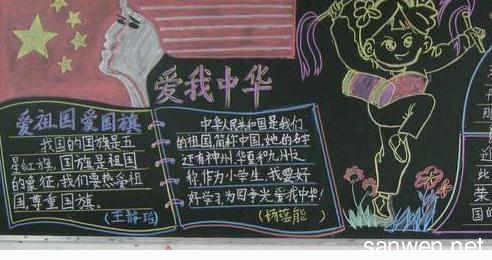 爱我中华
爱祖国爱国旗
我国的国旗是五
星红旗,国旗是祖国
的象征,我们要热爱祖
国,尊重国旗。
中华人民共和国是我们
的祖国简称中国,她的名字
还有神州、华夏和九州
称作为小学生,我要好
好学习为国争光爱我中华!
sanwen.net